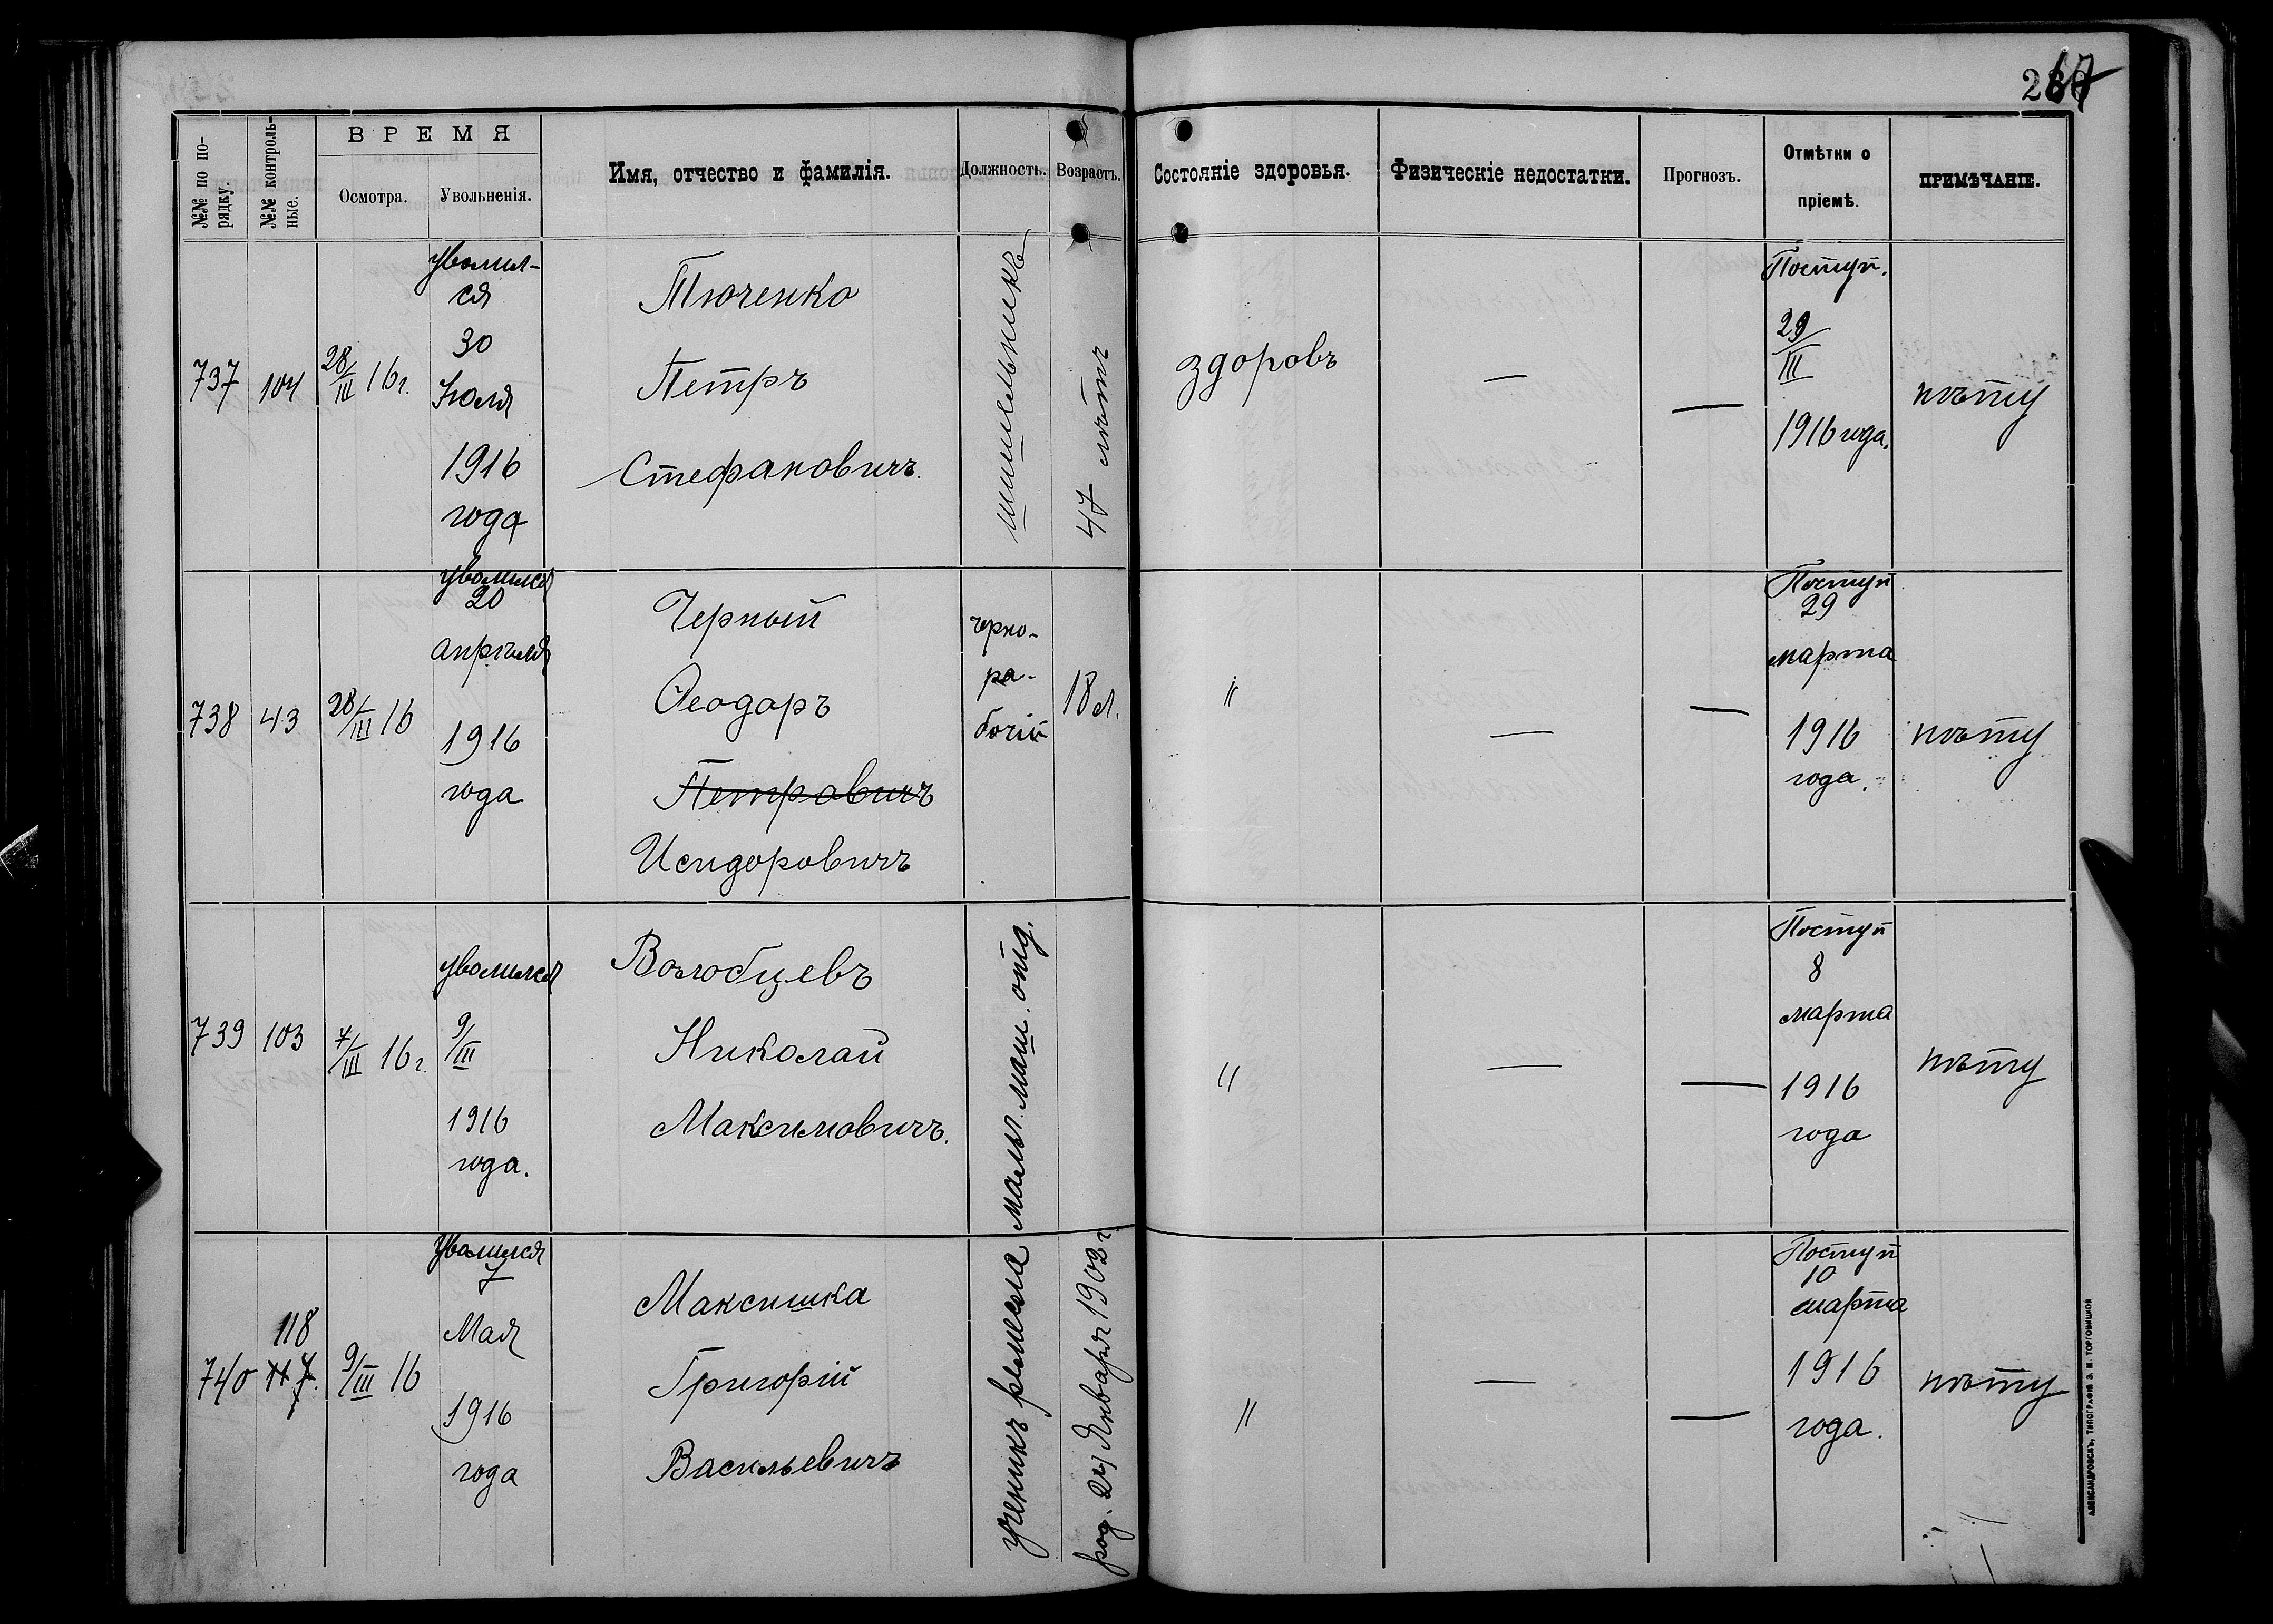 №№ по по-
рядку.
№№ контроль-
ные.
ВРЕМЯ
Осмотра.
Увольненія.
Имя, отчество и фамилія.
Должность.
Возрастъ.
Состояніе здоровья.
Физическіе недостатки.
Прогнозъ.
Отмѣтки о
пріемѣ.
ПРИМѢЧАНІЕ.
737
104
28/III 16 г.
уволил-
ся
30
Іюля
1916
года
Тюченко
Петръ
Стефановичъ.
47 лѣтъ
здоровъ
—
—
Поступ.
29/III
1916 года.
нѣту
738
43
28/III 16
уволился
20
апрѣля
1916
года
Черный
Ѳеодоръ
Петровичъ
Исидоровичъ
черно-
ра-
бочій
18 л.
"
—
—
Поступ
29
марта
1916
года.
нѣту
739
103
7/III 16 г.
уволился
9/III
1916
года.
Николай
Максимовичъ.
мальч. маш. отд.
"
—
—
Поступ
8
марта
1916
года
нѣту
740
118
117.
9/III 16
Уволился
7
Мая
1916
года
Максишка
Григорій
Васильевичъ
ученикъ ремесла
род. 24 Января 1902 г.
"
—
—
Поступ
10
марта
1916
года.
нѣту
АЛЕКСАНДРОВСКЪ, ТИПОГРАФІЯ Э. И. ТОРГОВИЦКОЙ